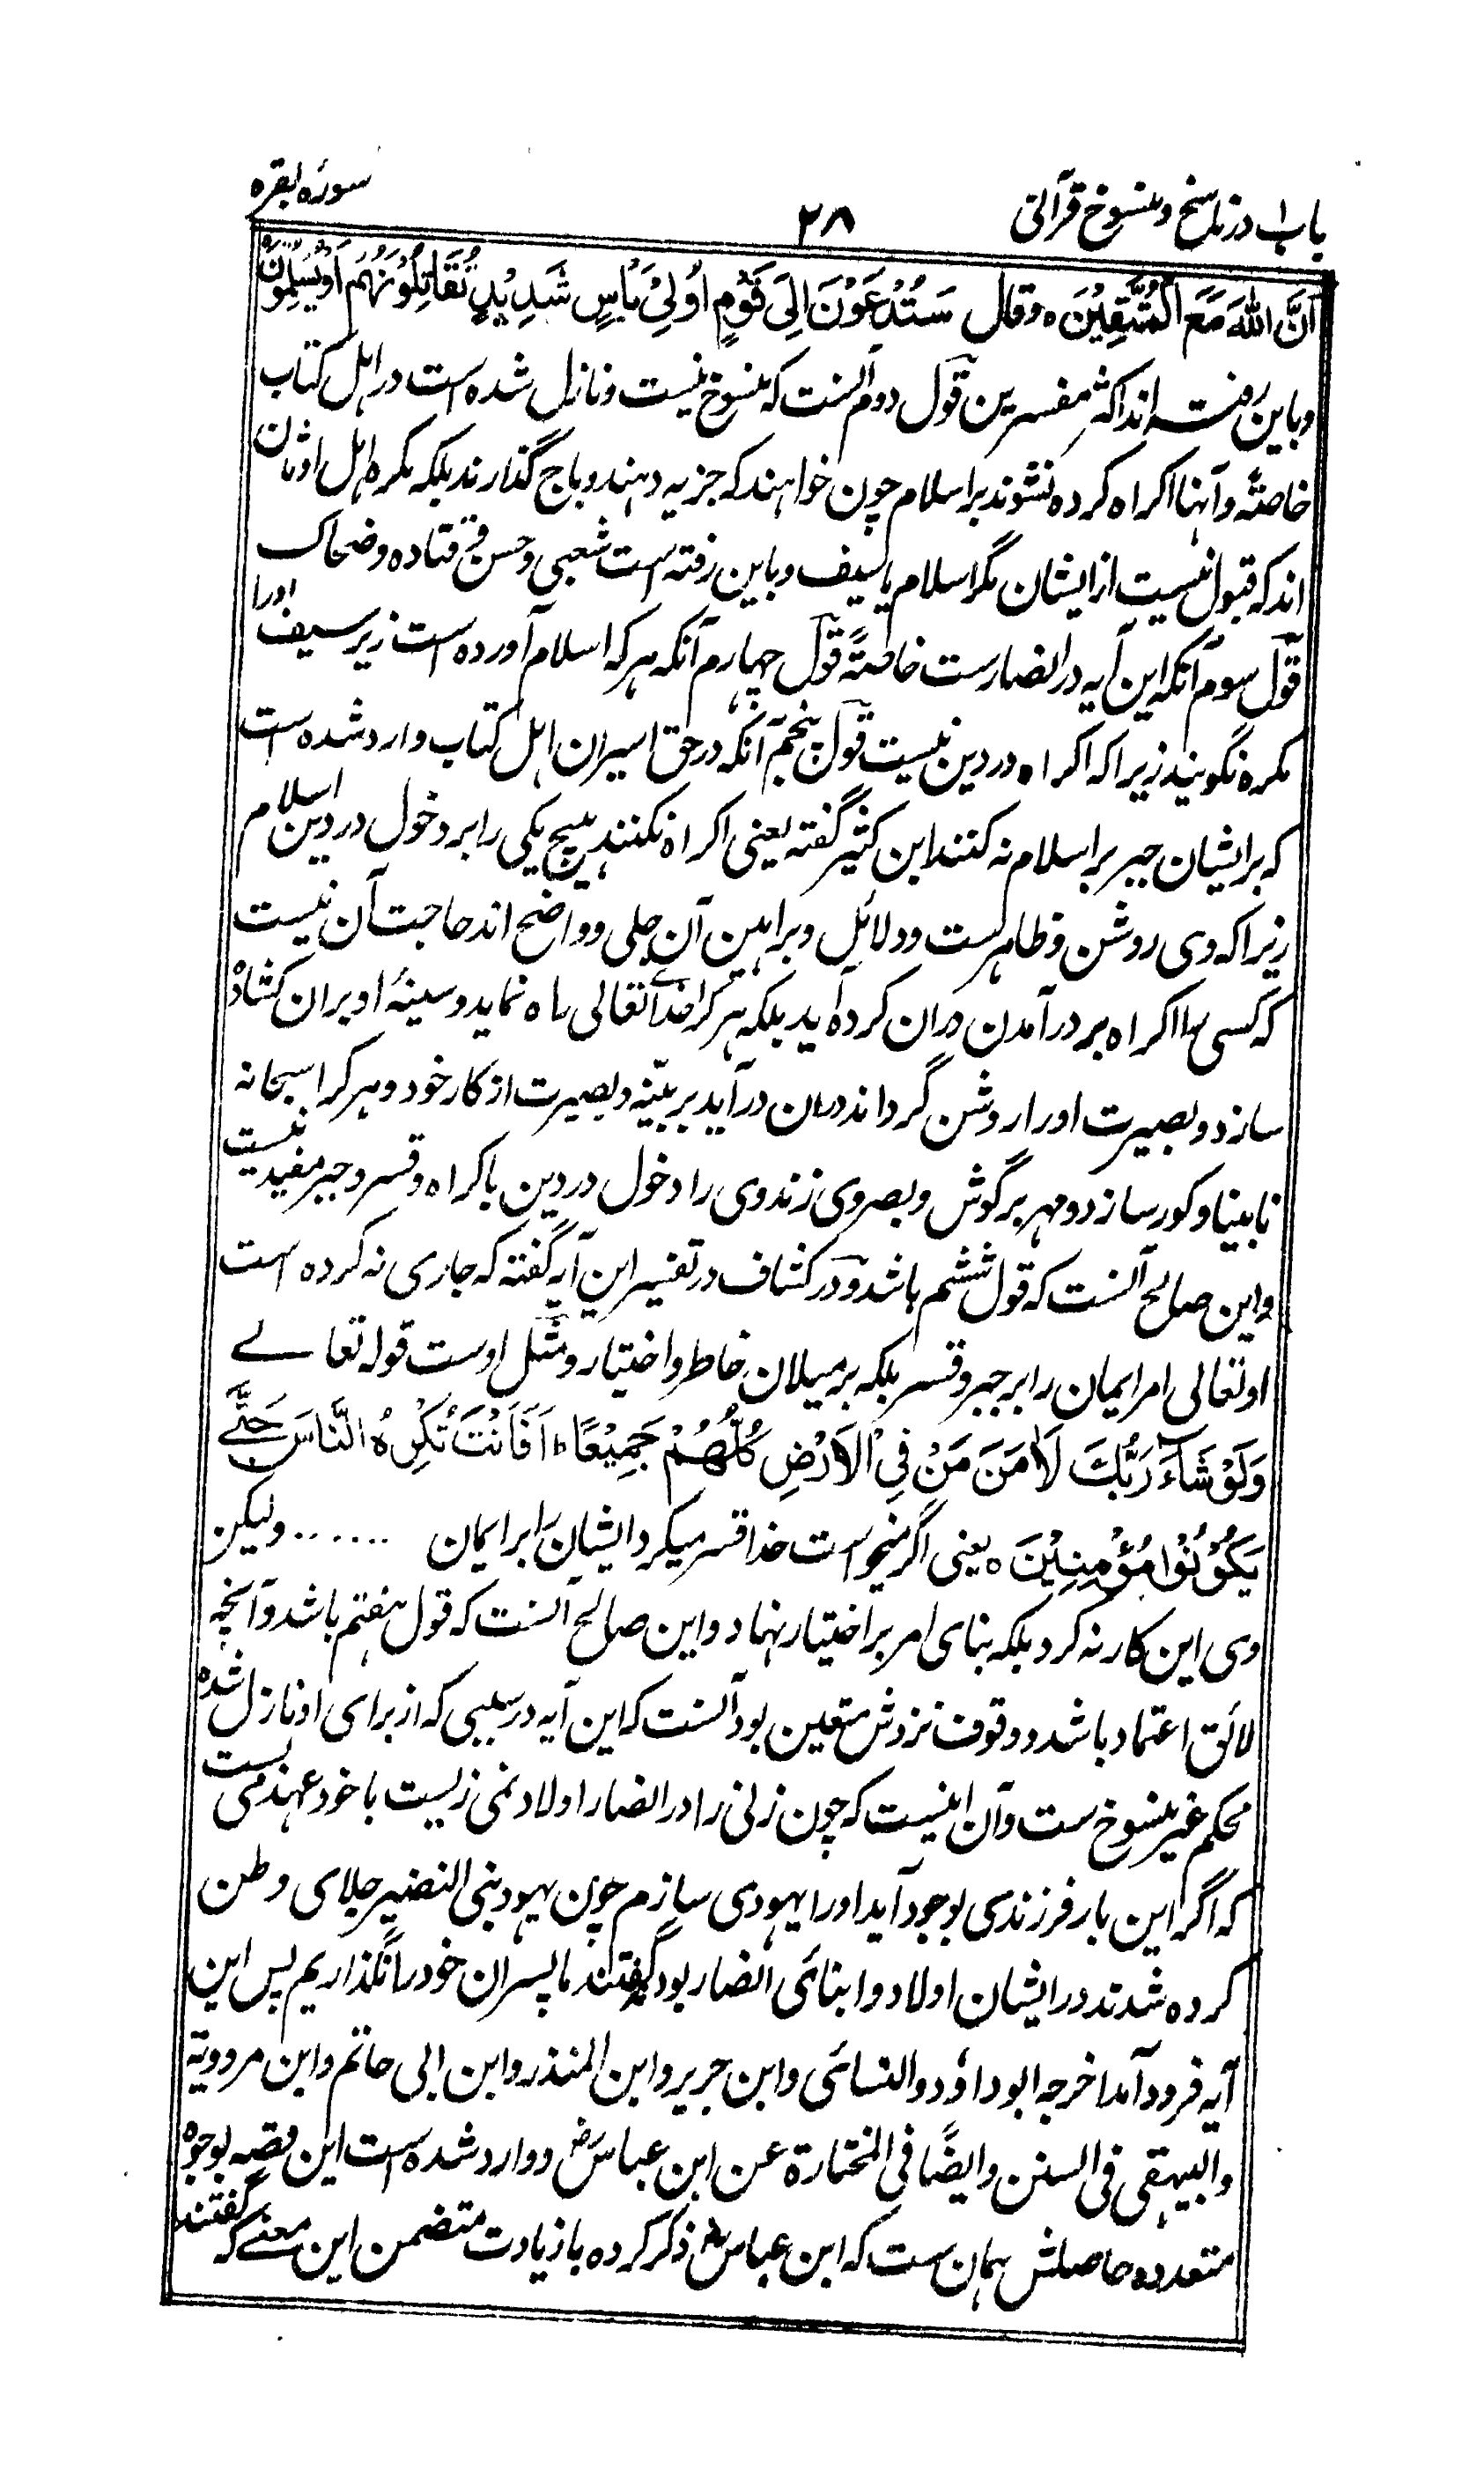 باب ۱ در ناسخ و منسوخ قرآنی ۲۸ سورۂ بقره
اَنَّ اللّٰهَ مَعَ الْمُتَّقِيْنَ ه وقال سَتُدْعَوْنَ اِلٰى قَوْمٍ اُولِيْ بَأْسٍ شَدِيْدٍ تُقَاتِلُوْنَهُمْ اَوْ يُسْلِمُوْنَ
وباین رفته اند اکثر مفسرین قول دوم آنست که منسوخ نیست و نازل شده است در اهل کتاب
خاصةً و آنها اکراه کرده نشوند بر اسلام چون خواهند که جزیه دهند و باج گذارند بلکه مکره اهل اوثان
اند که قبول نیست از ایشان مگر اسلام یا سیف و باین رفته است شعبی و حسن و قتاده و ضحاک
قول سوم آنکه این آیه در انصارست خاصةً قول چهارم آنکه هر که اسلام آورده است زیر سیف او را
مکره نگویند زیرا که اکراه در دین نیست قول پنجم آنکه در حق اسیران اهل کتاب وارد شده است
که بر ایشان جبر بر اسلام نه کنند ابن کثیر گفته یعنی اکراه نکنند هیچ یکی را بر دخول در دین اسلام
زیرا که وی روشن و ظاهرست و دلائل و براهین آن جلی و واضح اند حاجت آن نیست
که کسی را اکراه بر درآمدن دران کرده آید بلکه هر کرا خدا تعالی راه نماید و سینۂ او بران کشاده
سازد و بصیرت او را روشن گرداند دران درآید بر بیّنه و بصیرت از کار خود و هر کرا سبحانه
نابینا و کور سازد و مهر بر گوش و بصر وی زند وی را دخول در دین باکراه و قسر و جبر مفید نیست
و این صالح آنست که قول ششم باشد و در کشاف در تفسیر این آیه گفته که جاری نه کرده است
او تعالی امر ایمان را بر جبر و قسر بلکه بر میلان خاطر و اختیار و مثل اوست قوله تعالے
وَلَوْ شَآءَ رَبُّكَ لَاٰمَنَ مَنْ فِي الْاَرْضِ كُلُّهُمْ جَمِيْعًا ط اَفَاَنْتَ تُكْرِهُ النَّاسَ حَتّٰى
يَكُوْنُوْا مُؤْمِنِيْنَ ه یعنی اگر میخواست خدا قسر میکرد ایشان را بر ایمان ...... ولیکن
وی این کار نه کرد بلکه بنای امر بر اختیار نهاد و این صالح آنست که قول هفتم باشد و آنچه
لائق اعتماد باشد و وقوف نزدش متعین بود آنست که این آیه در سببی که از برای او نازل شده
محکم غیر منسوخ ست و آن اینست که چون زنی را در انصار اولاد نمی زیست با خود عهد می بست
که اگر این بار فرزندی بوجود آید او را یهودی سازم چون یهود بنی النضیر جلای وطن
کرده شدند در ایشان اولاد و ابنائی انصار بود گفتند ما پسران خود را نگذاریم پس این
آیه فرود آمد اخرجه ابو داؤد والنسائی وابن جریر وابن المنذر وابن ابی حاتم وابن مردویة
والبیهقی فی السنن وایضًا فی المختارة عن ابن عباسؓ و وارد شده است این قصه بوجوه
متعدده حاصلش همان ست که ابن عباسؓ ذکر کرده با زیادت متضمن این معنے که گفتند